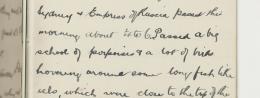 Sydney & Empress of Russia passed this
morning about Passed a big
school of porpoises & a lot of birds
hovering around some long fish like
eels, which were close to the top of the